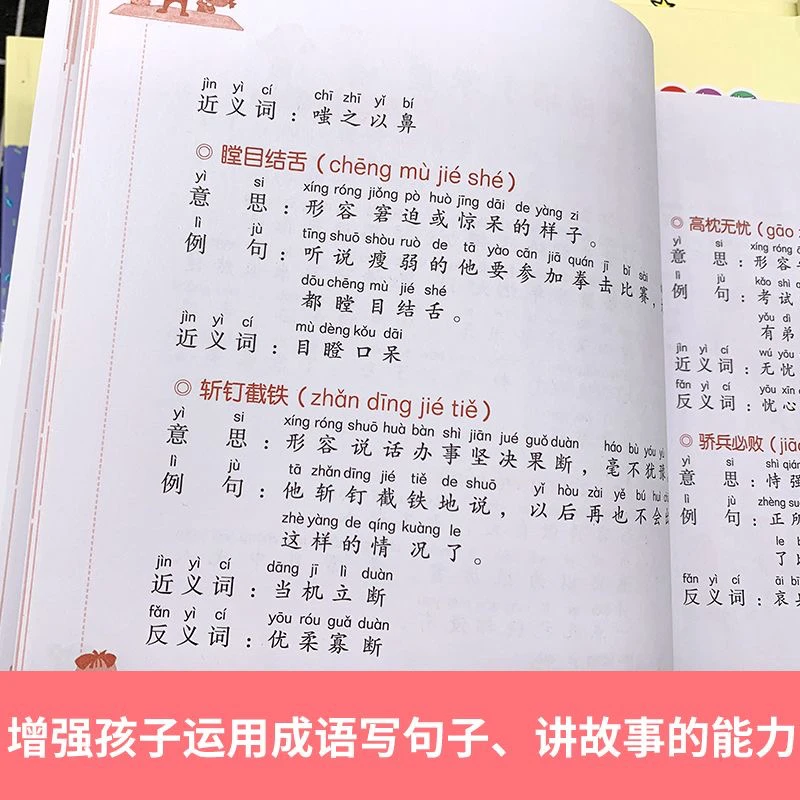 jìn yì cí chī zhī yǐ bí
近义词：嗤之以鼻
◎ 瞠目结舌（chēng mù jié shé）
yì si xíng róng jiǒng pò huò jīng dāi de yàng zi
意思：形容窘迫或惊呆的样子。
lì jù tīng shuō shòu ruò de tā yào cān jiā quán jī bǐ sài
例句：听说瘦弱的他要参加拳击比赛，
dōu chēng mù jié shé
都瞠目结舌。
jìn yì cí mù dèng kǒu dāi
近义词：目瞪口呆
◎ 斩钉截铁（zhǎn dīng jié tiě）
yì si xíng róng shuō huà bàn shì jiān jué guǒ duàn háo bù yóu yù
意思：形容说话办事坚决果断，毫不犹豫
lì jù tā zhǎn dīng jié tiě de shuō yǐ hòu zài yě bú huì
例句：他斩钉截铁地说，以后再也不会
zhè yàng de qíng kuàng le
这样的情况了。
jìn yì cí dāng jī lì duàn
近义词：当机立断
fǎn yì cí yōu róu guǎ duàn
反义词：优柔寡断
◎ 高枕无忧（gāo
yì si xíng róng
意思：形容
lì jù kǎo shì
例句：考试
yǒu dì
有弟
jìn yì cí wú yōu
近义词：无忧
fǎn yì cí yōu xīn
反义词：忧心
◎ 骄兵必败（jiāo
yì si shì qiáng
意思：恃强
lì jù zhèng suǒ
例句：正所
le
了
jìn yì cí āi bīng
反义词：哀兵
增强孩子运用成语写句子、讲故事的能力